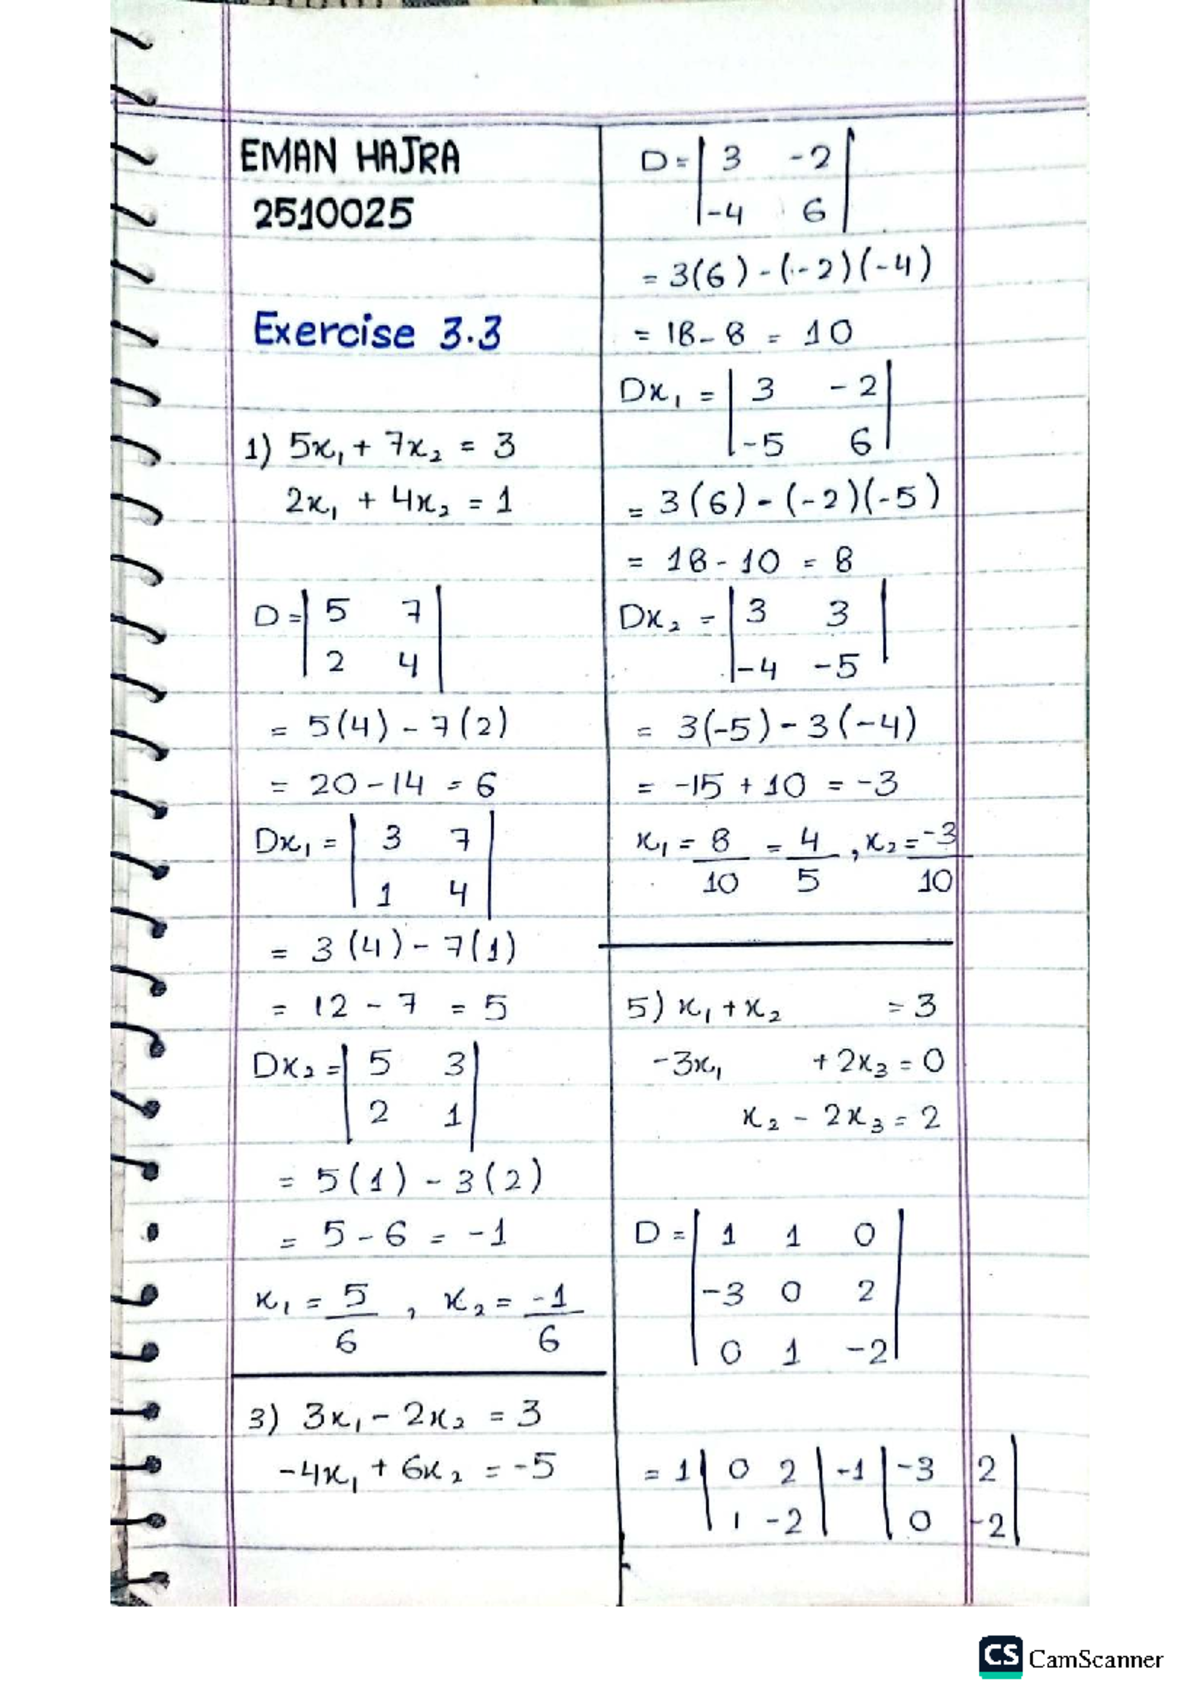 EMAN HAJRA
2510025
Exercise 3.3
1) 5x₁ + 7x₂ = 3
2x₁ + 4x₂ = 1
D = | 5 7 |
| 2 4 |
= 5(4) - 7(2)
= 20 - 14 = 6
Dx₁ = | 3 7 |
| 1 4 |
= 3(4) - 7(1)
= 12 - 7 = 5
Dx₂ = | 5 3 |
| 2 1 |
= 5(1) - 3(2)
= 5 - 6 = -1
x₁ = 5/6 , x₂ = -1/6
3) 3x₁ - 2x₂ = 3
-4x₁ + 6x₂ = -5
D = | 3 -2 |
| -4 6 |
= 3(6) - (-2)(-4)
= 18 - 8 = 10
Dx₁ = | 3 -2 |
| -5 6 |
= 3(6) - (-2)(-5)
= 18 - 10 = 8
Dx₂ = | 3 3 |
| -4 -5 |
= 3(-5) - 3(-4)
= -15 + 10 = -3
x₁ = 8/10 = 4/5 , x₂ = -3/10
5) x₁ + x₂ = 3
-3x₁ + 2x₃ = 0
x₂ - 2x₃ = 2
D = | 1 1 0 |
| -3 0 2 |
| 0 1 -2 |
= 1 | 0 2 | -1 | -3 2 |
| 1 -2 | | 0 -2 |
CS CamScanner